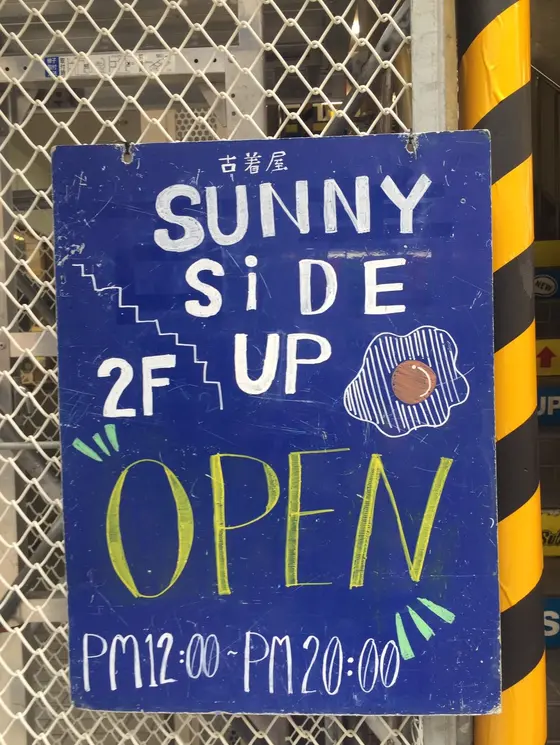 古着屋
SUNNY
SiDE
UP
2F
OPEN
PM12:00~PM20:00
NEW
UP